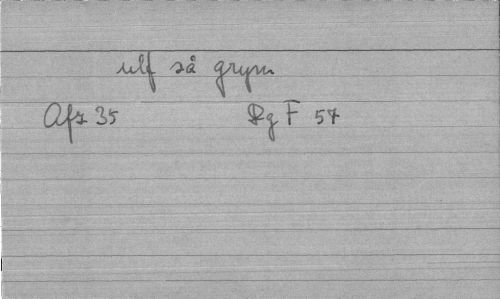 ulf så grym
Afz 35 Rg F 57